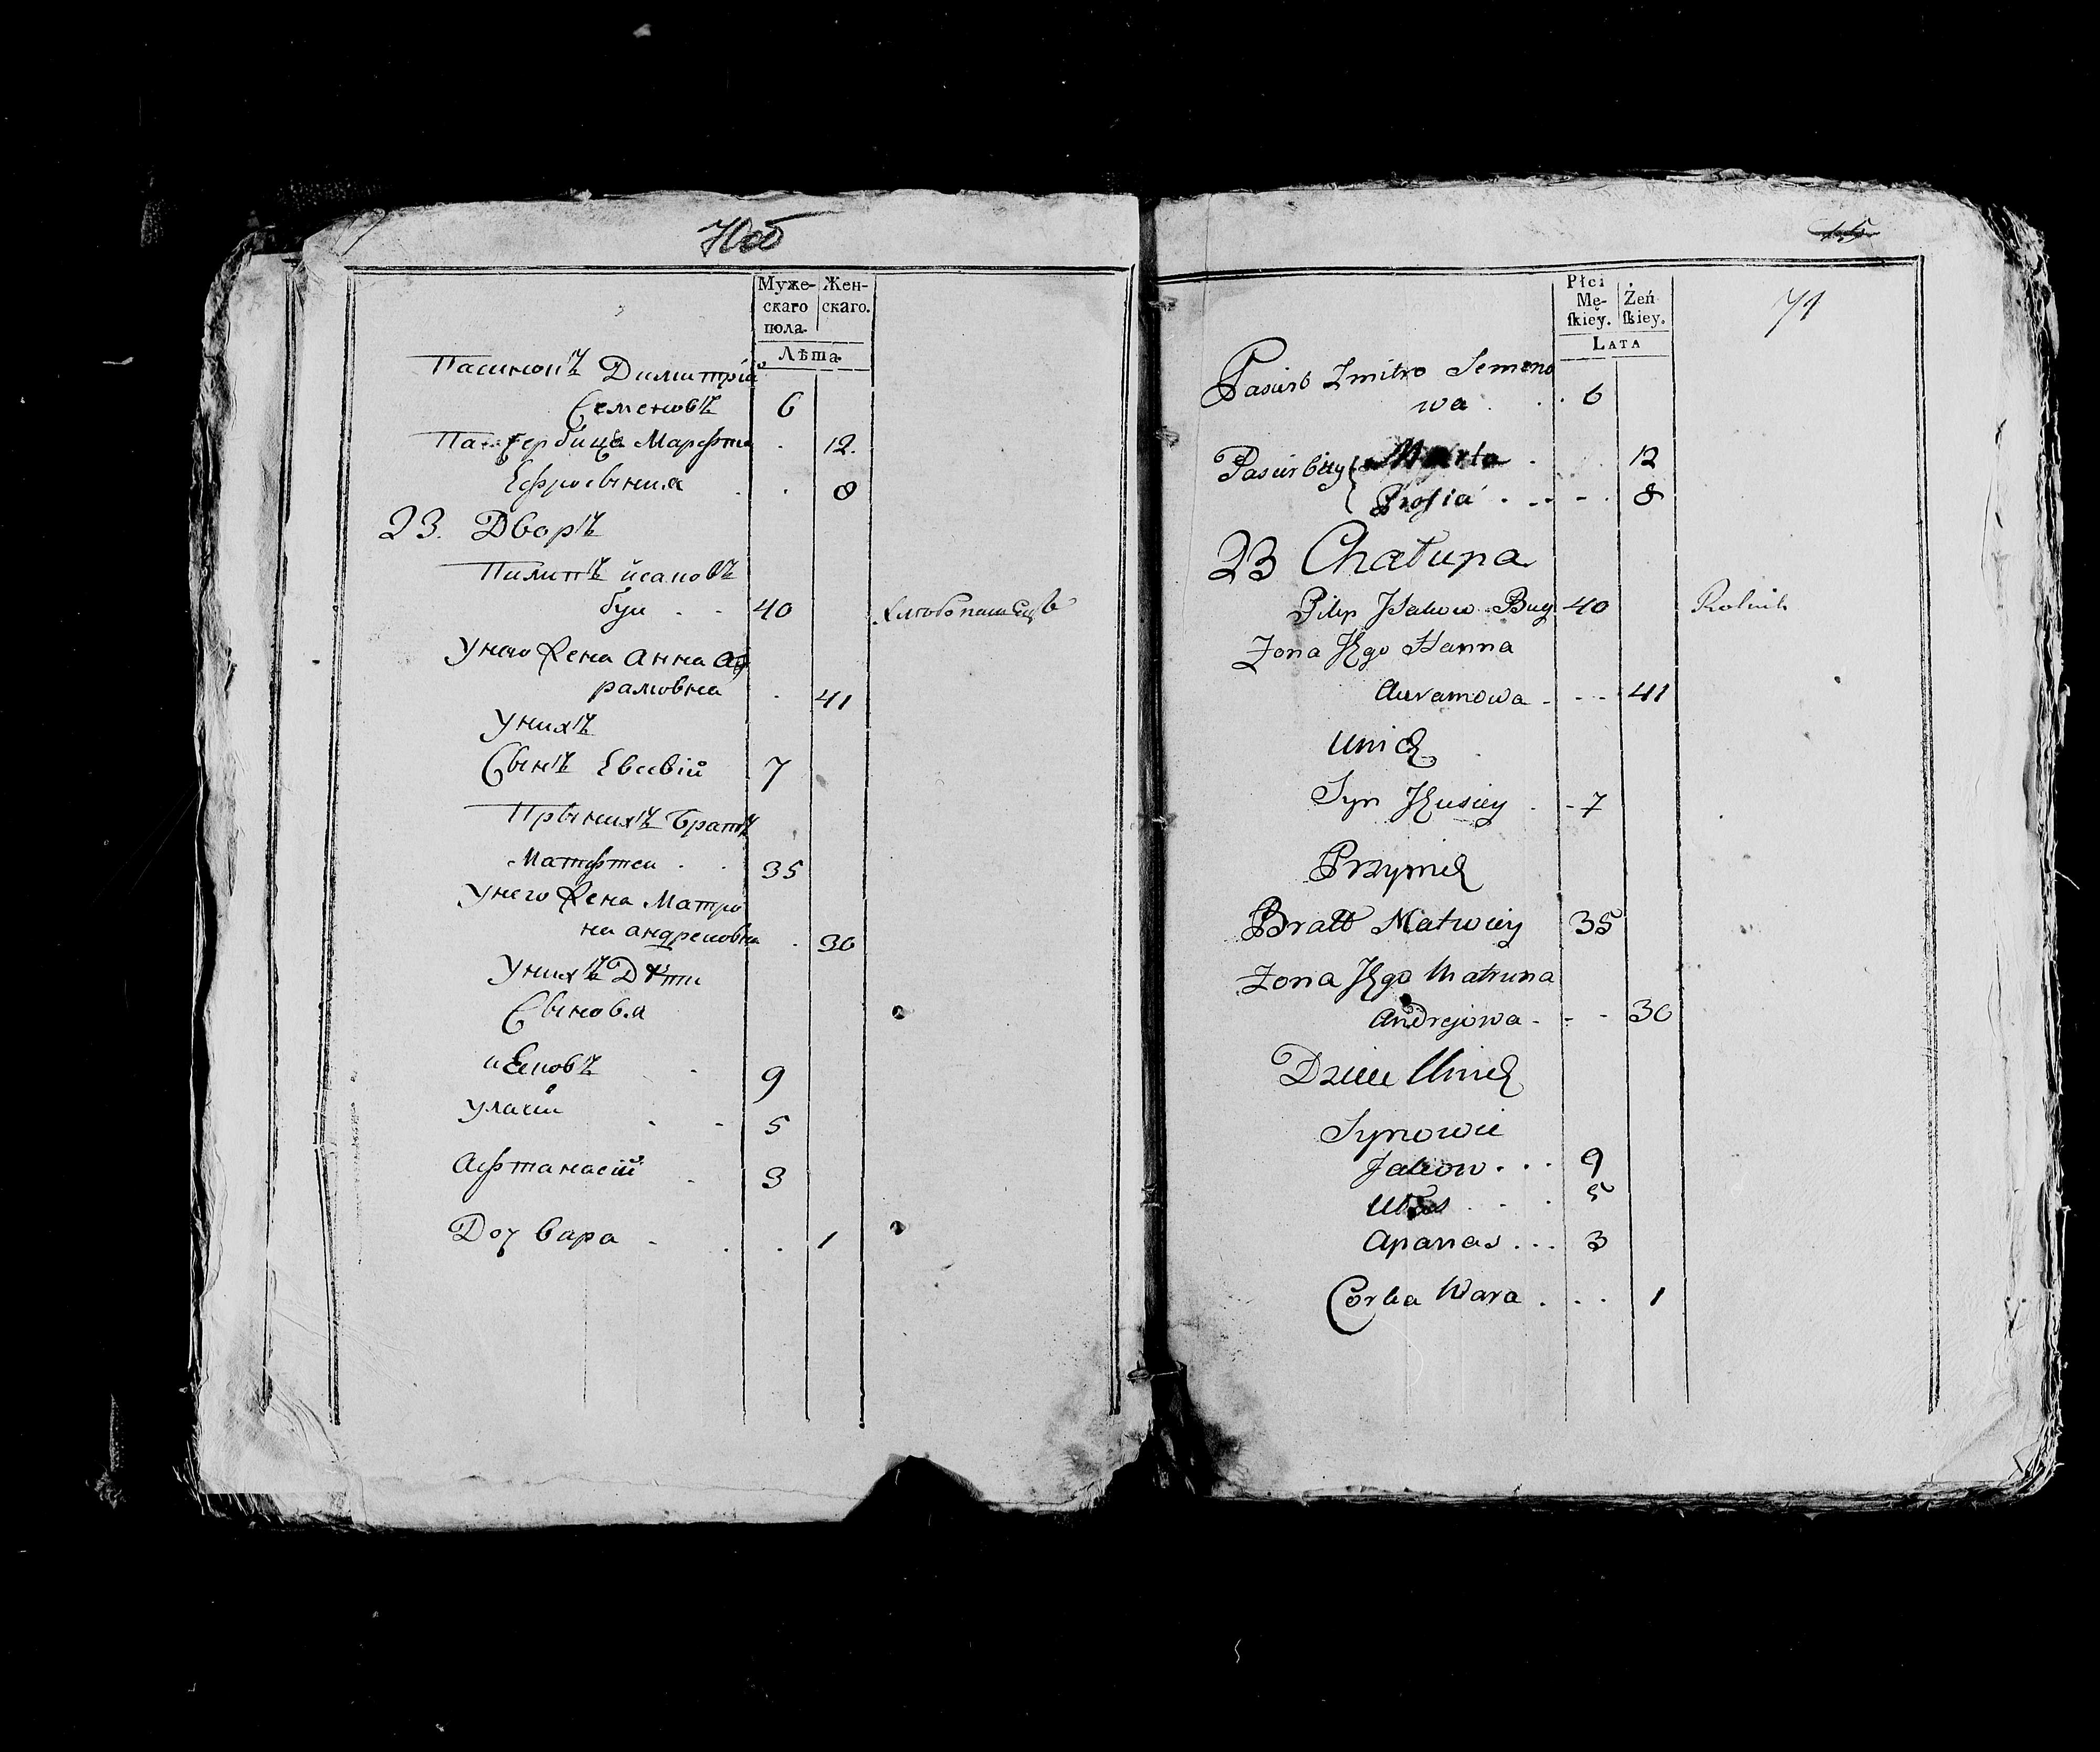 70об
Муже-
скаго
пола.
Жен-
скаго.
Лѣта.
Пасинокъ Димитрій
Семеновъ 6
Марфта 12.
Ефросыния 8
23. Дворъ
Пилипъ исаковъ
буи 40 Хлебопашецъ
Унего жена Анна Ав
рамовна 41
Унихъ
Сынъ Евсвій 7
Прынихъ братъ
Матфтеи 35
Унего жена Матро
на андреиовна 30
Унихъ Дѣти
Сыновя
иЕковъ 9
Уласіи 5
Афтанасій 3
Доч вара 1
15
71
Płci
Mę-
ſkiey.
Żeń
ſkiey.
LATA
Pasierb Zmitro Semeno
wa 6
Pasierbicy Marta 12
Prosia 8
23 Chałupa
Pilip Isakow Buy 40 Rolnik
Zona Jego Hanna
Auramowa 41
Unich
Syn Jeusiey 7
Przynich
Bratt Matwiey 35
Zona Jego Matruna
Andrejowa 30
Dzieci Unich
Synowie
Jakow 9
5
Apanas 3
Corka Wara 1